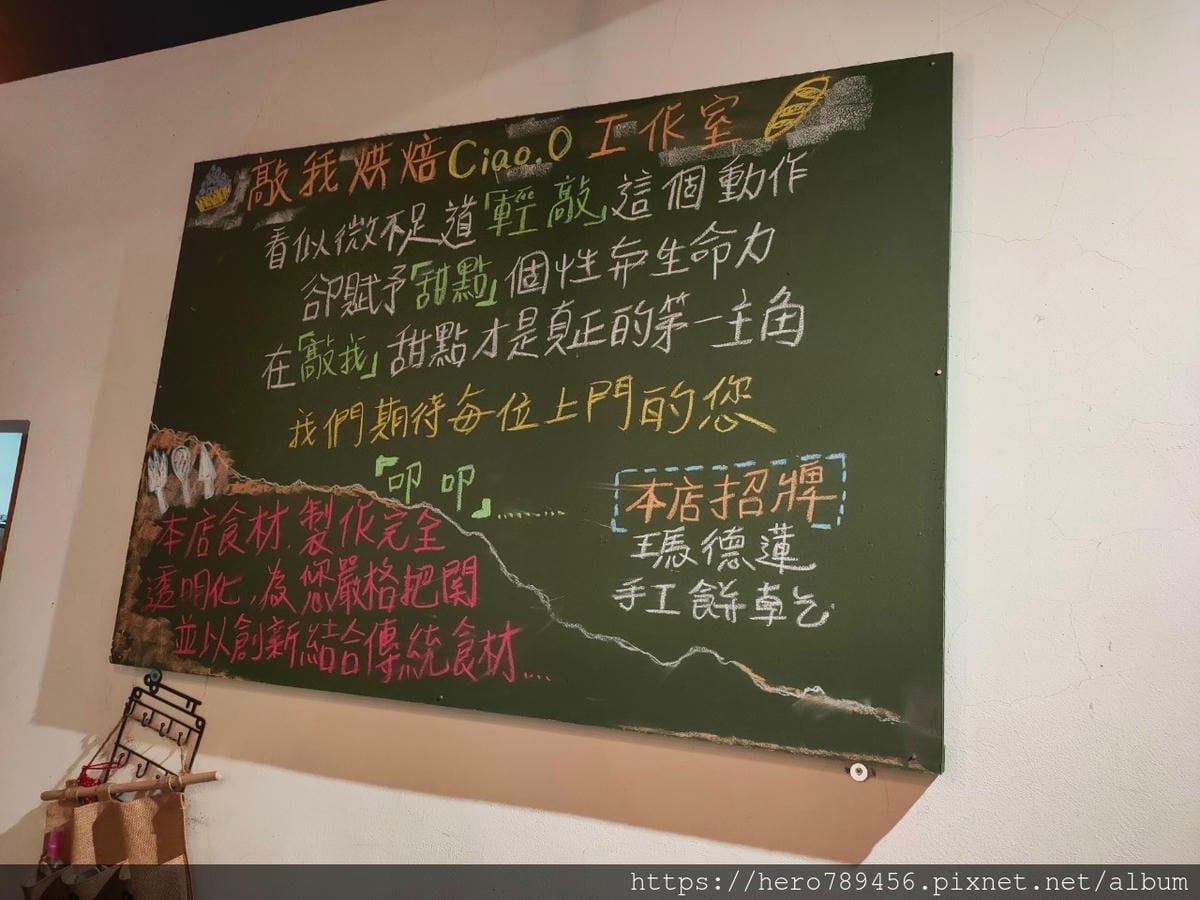 敲我烘焙Ciao.O工作室
看似微不足道「輕敲」這個動作
卻賦予「甜點」個性与生命力
在「敲我」甜點才是真正的第一主角
我們期待每位上門的您
「叩叩」........
本店食材.製作完全
透明化,為您嚴格把関
並以創新結合傳統食材...
本店招牌
瑪德蓮
手工餅乾
https://hero789456.pixnet.net/album